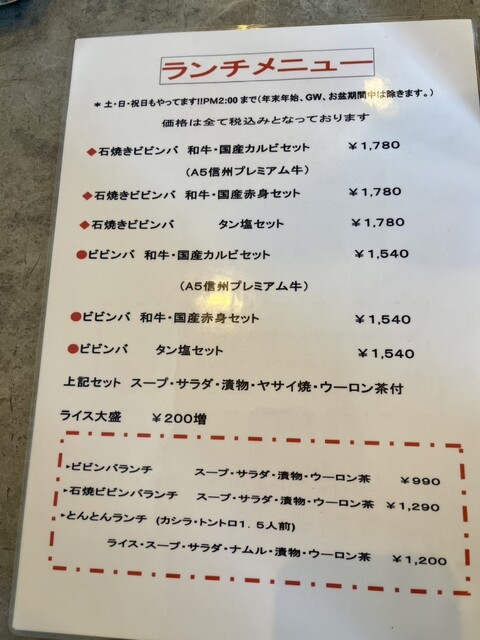 ランチメニュー
* 土・日・祝日もやってます!!PM2:00 まで(年末年始、GW、お盆期間中は除きます。)
価格は全て税込みとなっております
◆石焼きビビンバ 和牛・国産カルビセット ¥1,780
(A5信州プレミアム牛)
◆石焼きビビンバ 和牛・国産赤身セット ¥1,780
◆石焼きビビンバ タン塩セット ¥1,780
●ビビンバ 和牛・国産カルビセット ¥1,540
(A5信州プレミアム牛)
●ビビンバ 和牛・国産赤身セット ¥1,540
●ビビンバ タン塩セット ¥1,540
上記セット スープ・サラダ・漬物・ヤサイ焼・ウーロン茶付
ライス大盛 ¥200増
▸ビビンバランチ スープ・サラダ・漬物・ウーロン茶 ¥990
▸石焼ビビンバランチ スープ・サラダ・漬物・ウーロン茶 ¥1,290
▸とんとんランチ (カシラ・トントロ1.5人前)
ライス・スープ・サラダ・ナムル・漬物・ウーロン茶 ¥1,200